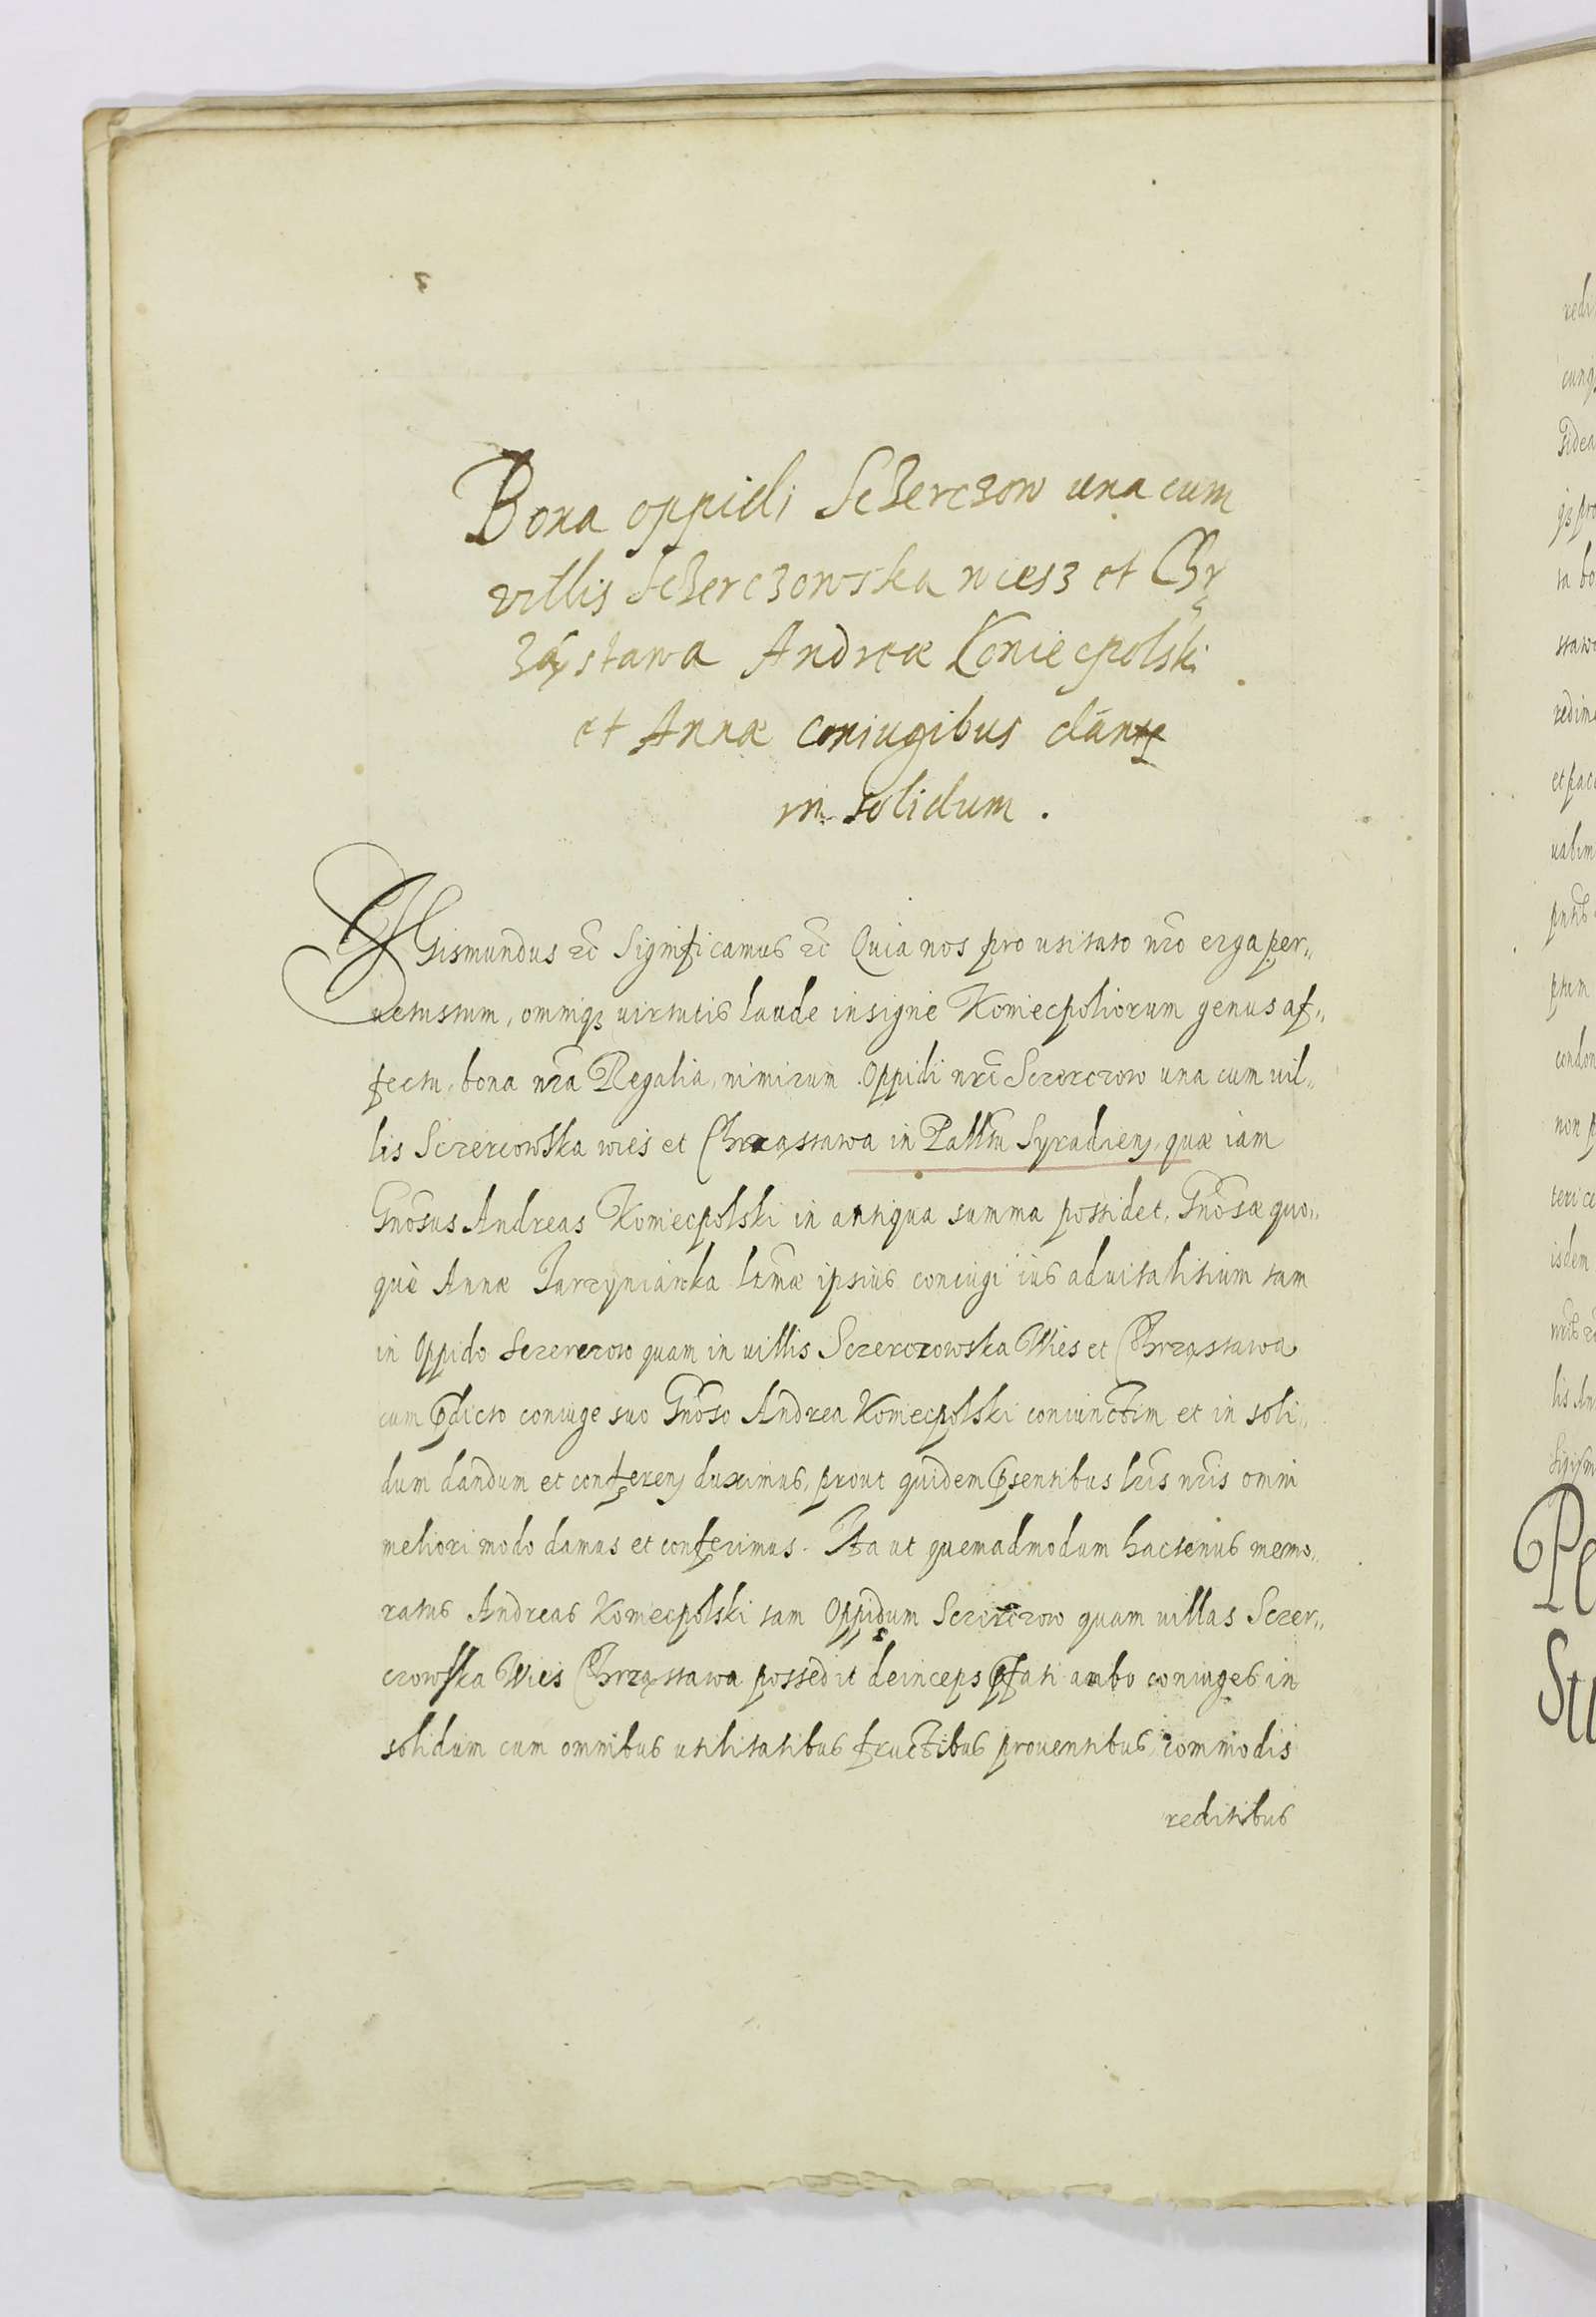 Bona oppidi Sczerczow una cum
villis Sczerczowska wiesz et Chr
ząstawa Andreæ Koniecpolski
et Annæ coniugibus dantr
in solidum.
SIgismundus etc̃ Significamus etc̃ Quia nos pro usitato nr̃o erga per„
uetustum, omniqꝫ uirtutis laude insigne Koniecpoliorum genus af„
fectu, bona nr̃a Regalia, nimirum Oppidi nr̃i Sczerczow una cum uil„
lis Sczercowska wies et Chrząstawa in Pallt̃u Syradien, quæ iam
Gnõsus Andreas Koniecpolski in antiqua summa possidet, Gnõsæ quo„
què Annæ Jarzyniancka lt̃mæ ipsius coniugi ius aduitalitium tam
in Oppido Sczerczow quam in uillis Sczerczowska Wies et Chrząstawa
cum p̃dicto coniuge suo Gnõso Andrea Koniecpolski coniunctim et in soli„
dum dandum et conferen duximus, prout quidem p̃sentibus lr̃is nr̃is omni
meliori modo damus et conferimus. Ita ut quemadmodum hactenus memo„
ratus Andreas Koniecpolski tam Oppidum Sczerczow quam uillas Sczer„
czowska Wies Chrząstawa possedit deinceps p̃fati ambo coniuges in
solidum cum omnibus utilitatibus fructibus prouentibus commodis
reditibus